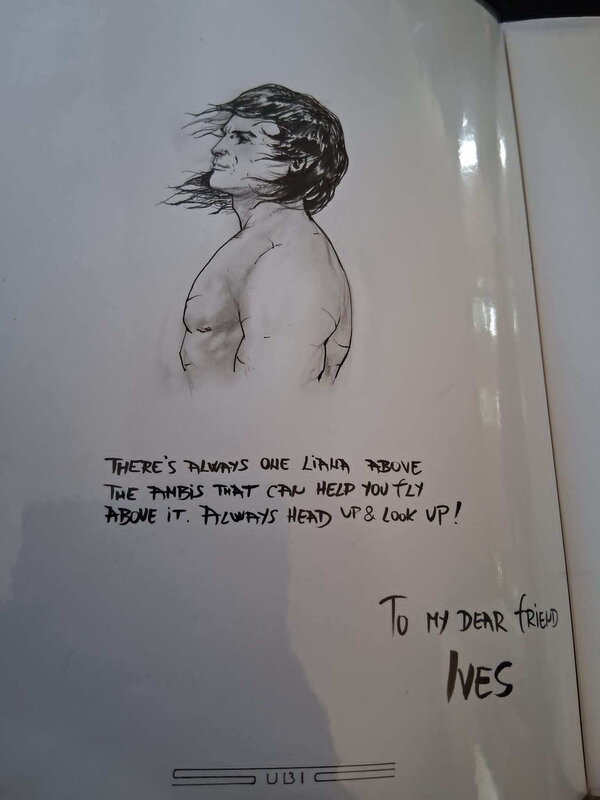 THERE'S ALWAYS ONE LIANA ABOVE
THE AMBIS THAT CAN HELP YOU FLY
ABOVE IT. ALWAYS HEAD UP & LOOK UP!
TO MY DEAR FRIEND
IVES
UBI